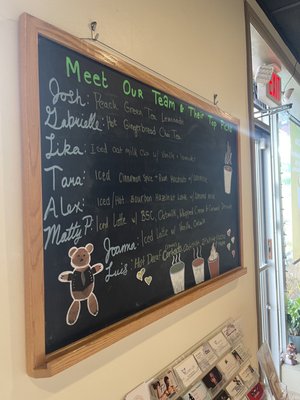 Meet Our Team & Their Top Picks
Josh: Peach Green Tea Lemonade
Gabrielle: Hot Gingerbread Chai Tea
Lika: Iced Oat Milk Chai w/ Vanilla +
Tara: Iced Cinnamon Spice + Rum Hazelnuts w/
Alex: Iced/Hot Bourbon Hazelnut Latte w/ Almond Milk
Matty P: Iced Latte w/ BSC, Oatmilk, Whipped Cream & Caramel Drizzle
Joanna: Iced Latte w/ Vanilla,
Luis: Hot Decaf